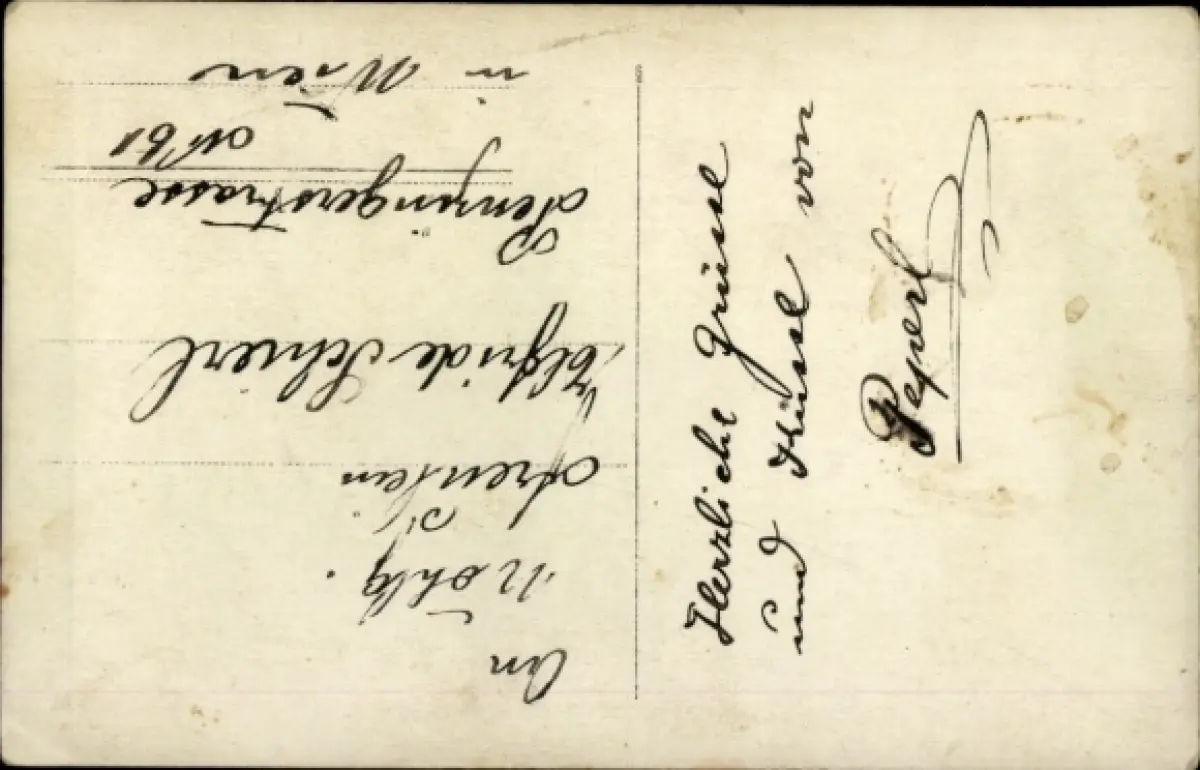 An
Wöhlg.
Freulein
Elfride Schierl
Penzingerstrasse
in Wien
Herzliche Grüsse
und Küsse von
Peperl